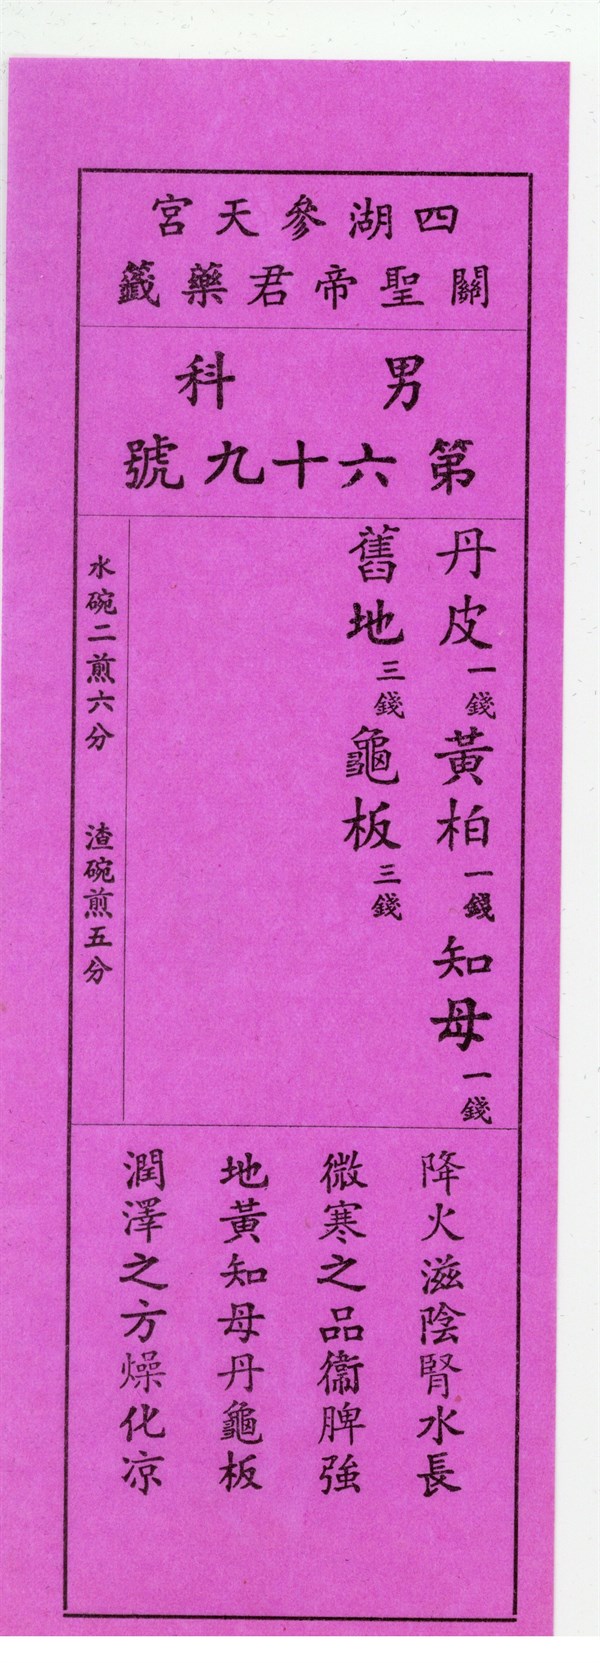 四湖參天宮
關聖帝君藥籤
男科
第六十九號
丹皮一錢黃柏一錢知母一錢
舊地三錢龜板三錢
水碗二煎六分　渣碗煎五分
降火滋陰腎水長
微寒之品衞脾強
地黃知母丹龜板
潤澤之方燥化凉